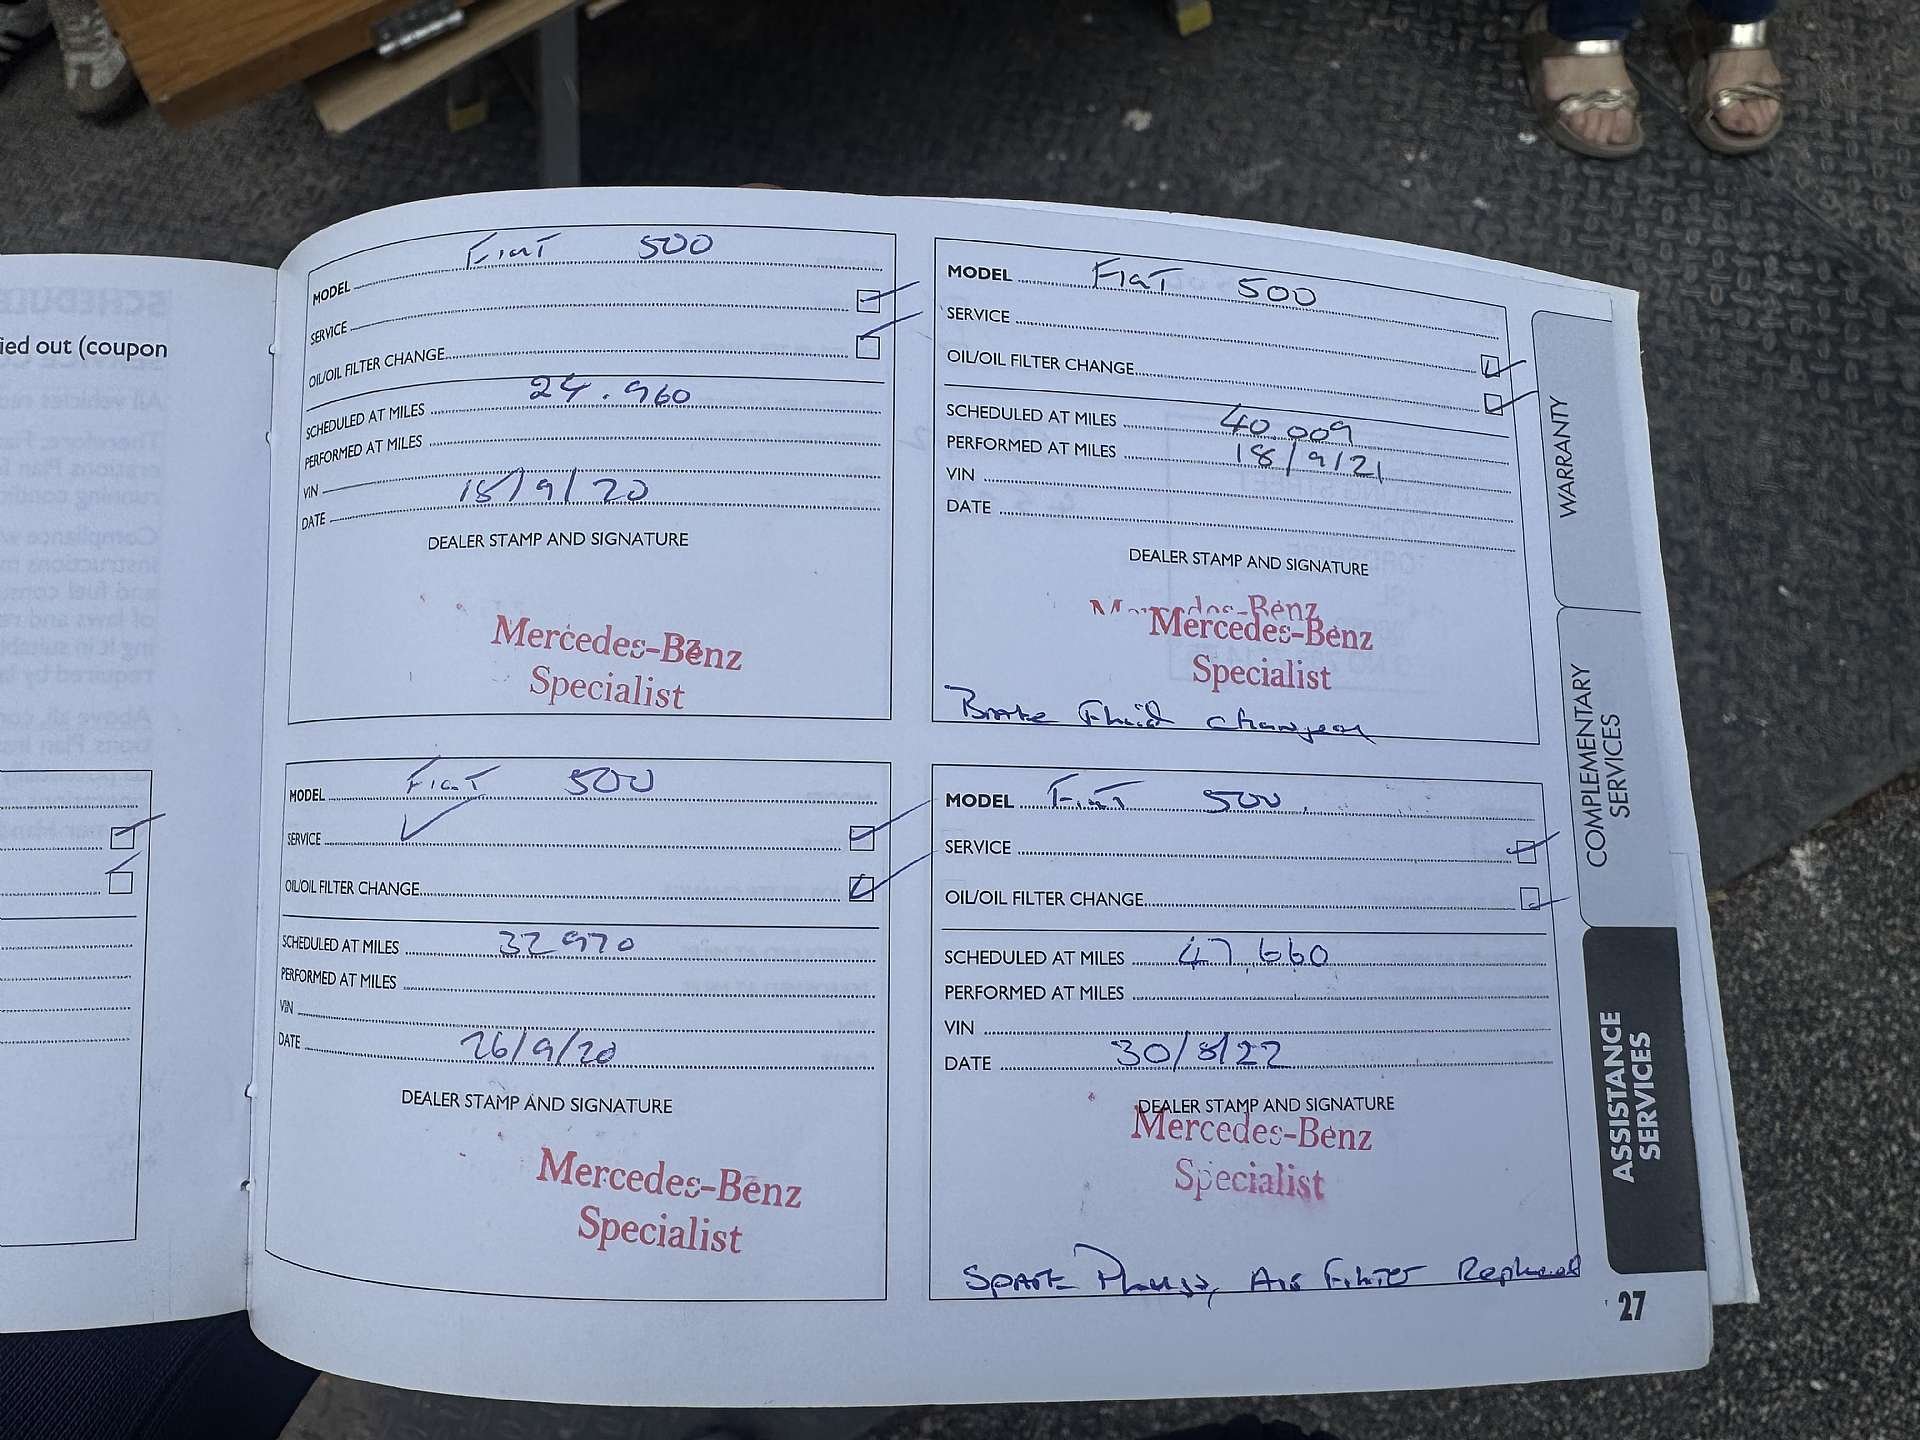 ied out (coupon
MODEL Fiat 500
SERVICE
OIL/OIL FILTER CHANGE
SCHEDULED AT MILES 24.960
PERFORMED AT MILES
VIN
DATE 18/9/20
DEALER STAMP AND SIGNATURE
Mercedes-Benz
Specialist
MODEL Fiat 500
SERVICE
OIL/OIL FILTER CHANGE
SCHEDULED AT MILES 40.009
PERFORMED AT MILES 18/9/21
VIN
DATE
DEALER STAMP AND SIGNATURE
Mercedes-Benz
Mercedes-Benz
Specialist
Brake Fluid changed
MODEL Fiat 500
SERVICE
OIL/OIL FILTER CHANGE
SCHEDULED AT MILES 32970
PERFORMED AT MILES
VIN
DATE 26/9/20
DEALER STAMP AND SIGNATURE
Mercedes-Benz
Specialist
MODEL Fiat 500
SERVICE
OIL/OIL FILTER CHANGE
SCHEDULED AT MILES 47,660
PERFORMED AT MILES
VIN
DATE 30/8/22
DEALER STAMP AND SIGNATURE
Mercedes-Benz
Specialist
Spark Plugs, Air Filter Replaced
WARRANTY
COMPLEMENTARY
SERVICES
ASSISTANCE
SERVICES
27